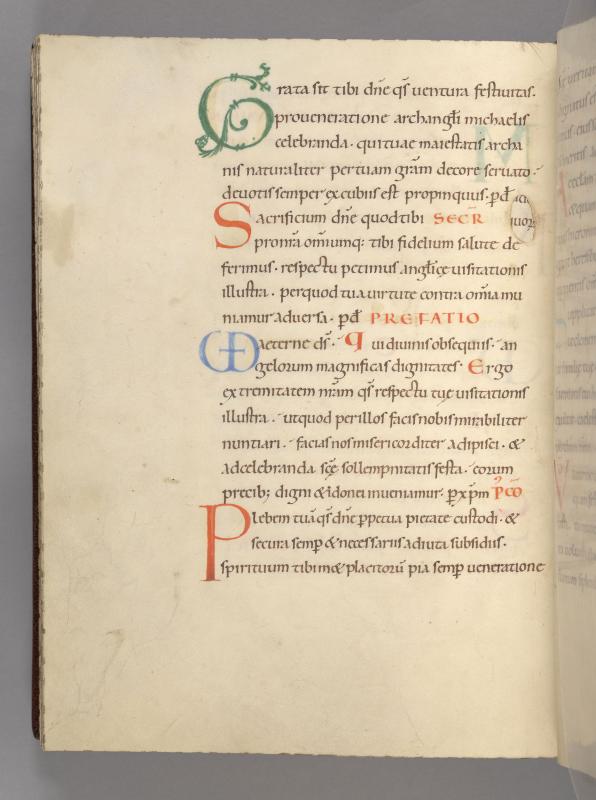 Grata sit tibi dn̄e qs̄ ventura festivitas.
proveneratione archangl̄i michaelis
celebranda · qui tuae maiestatis archa
nis naturaliter per tuam grām decore servato ·
devotis semper excubiis est propinquus · p̄d
Sacrificium dn̄e quod tibi SECR̄
pronrā omniumq; tibi fidelium salute de
ferimus · respectu petimus anglicę visitationis
illustra · per quod tua virtute contra omīa mu
niamur adversa · p̄d PREFATIO
VD aeterne ds̄ · Qui divinis obsequiis · an
gelorum magnificas dignitates · Ergo
extremitatem nrām qs̄ respectu tuę visitationis
illustra · ut quod per illos facis nobis mirabiliter
nuntiari · facias nos misericorditer adipisci · &
ad celebranda scę sollempnitatis festa · eorum
precib; digni & idonei inveniamur · p xp̄m P̄CŌ
Plebem tuā qs̄ dn̄e p̱petua pietate custodi · &
secura semp̱ & necessariis adiuta subsidiis ·
spirituum tibimet placitorū pia semp̱ veneratione